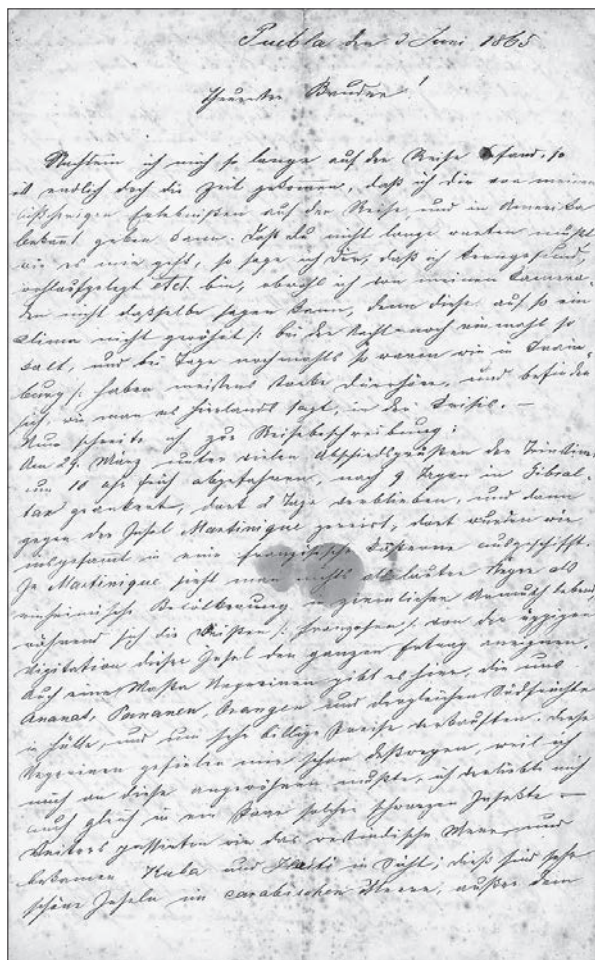 Puebla den 3 Juni 1865
Theuerster Bruder!
Nachdem ich mich so lange auf der Reise befand, so
ist endlich doch die Zeit gekommen, daß ich dir von meinen
bißherigen Erlebnißen auf der Reise, und in Amerika
bekannt geben kann. Daß du nicht lange warten mußt
wie es mir geht, so sage ich dir, daß ich kerngesund,
wohlaufgelegt etct. bin, obwohl ich von meinen Kamera-
den nicht daßselbe sagen kann, denn diese auf so ein
Clima nicht gewöhnt /: bei der Nacht noch einmahl so
kalt, und bei Tage nochmahls so warm wie in
burg :/ haben meistens starke Diarrhöe, und befinden
sich, wie man es hierlands sagt, in der Krisis. —
Nun schreite ich zur Reisebeschreibung:
Am 29. März unter vielen Abschiedsgrüßen der
um 10 Uhr früh abgefahren, nach 9 Tagen in Gibral-
tar geankert, dort 2 Tage verblieben, und dann
gegen der Insel Martinique gereist, dort wurden wir
insgesammt in eine französische Kaserne ausgeschifft.
In Martinique sieht man nichts als lauter Neger als
einheimische Bevölkerung in ziemlicher Armuth lebend,
während sich die Weißen /: Franzosen :/ von der üppigen
Vegitation dieser Insel den ganzen Ertrag aneignen.
Auch eine Maßa Negerinen gibt es hier, die uns
Ananas, Bananen, Orangen und dergleichen Südfrüchte
in Hülle, und um sehr billige Preise verkauften. Diese
Negerinen gefielen mir schon deßwegen, weil ich
mich an diese angewöhnen mußte, ich verliebte mich
auch gleich in ein Paar solcher schwarzen Insekte —
Weiters passierten wir das westindische Meer, und
bekamen Kuba und Haiti in Sicht; dieß sind sehr
schöne Inseln im carabischen Meere, außer dem